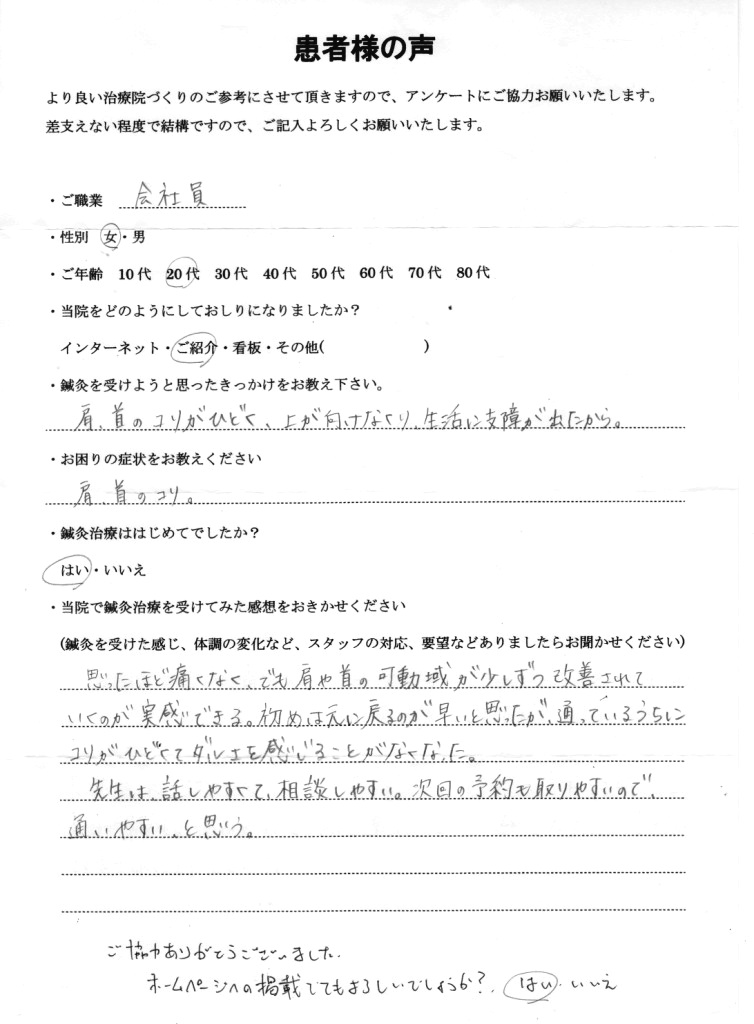 患者様の声
より良い治療院づくりのご参考にさせて頂きますので、アンケートにご協力お願いいたします。
差支えない程度で結構ですので、ご記入よろしくお願いいたします。
・ご職業 会社員
・性別 女・男
・ご年齢 10代 20代 30代 40代 50代 60代 70代 80代
・当院をどのようにしておしりになりましたか？
インターネット・ご紹介・看板・その他( )
・鍼灸を受けようと思ったきっかけをお教え下さい。
肩、首のコリがひどく、上が向けなくり、生活に支障が出たから。
・お困りの症状をお教えください
肩、首のコリ。
・鍼灸治療ははじめてでしたか？
はい・いいえ
・当院で鍼灸治療を受けてみた感想をおきかせください
(鍼灸を受けた感じ、体調の変化など、スタッフの対応、要望などありましたらお聞かせください)
思ったほど痛くなく、でも肩や首の可動域が少しずつ改善されて
いくのが実感できる。初めは元に戻るのが早いと思ったが、通っているうちに
コリがひどくてダルエを感じることがなくなった。
先生は、話しやすくて、相談しやすい。次回の予約も取りやすいので、
通いやすい、と思う。
ご協力ありがとうございました。
ホームページへの掲載でてもよろしいでしょうか？ はい・いいえ